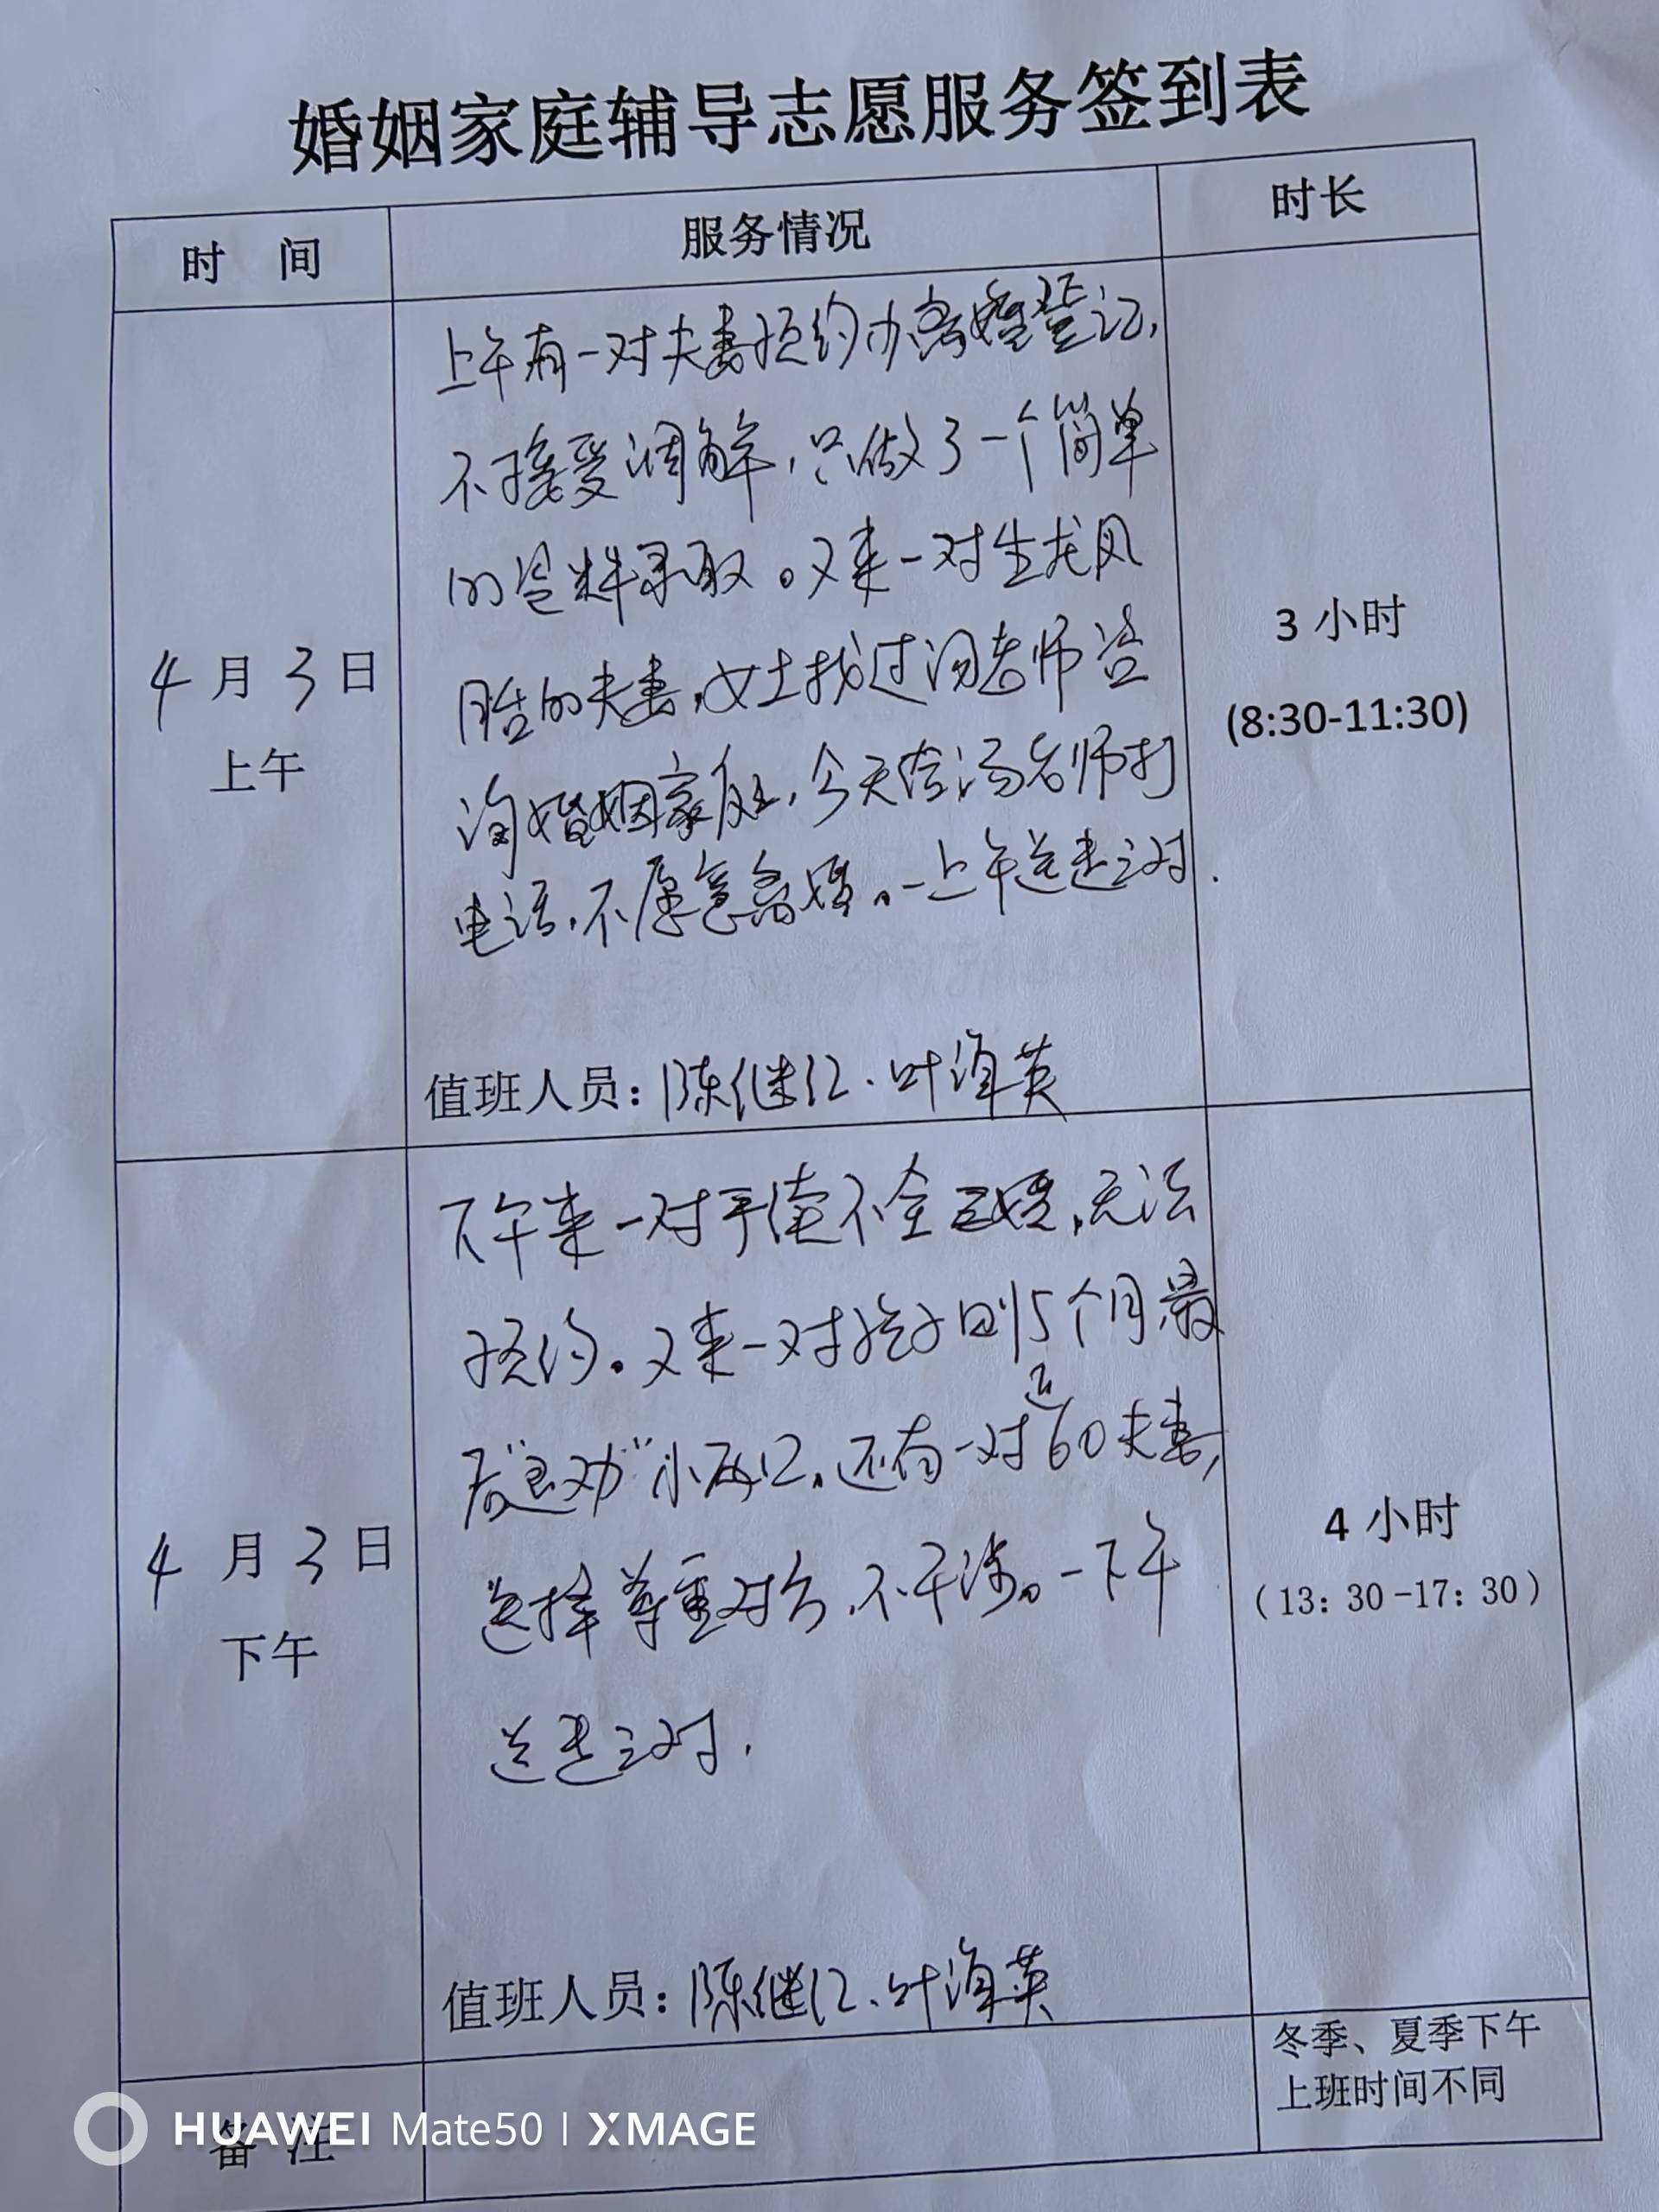 婚姻家庭辅导志愿服务签到表
时 间
服务情况
时长
4月3日
上午
上午有一对夫妻预约办离婚登记,
不接受调解,只做了一个简单
的资料录取。又来一对生龙凤
胎的夫妻,女士找过汤老师咨
询婚姻家庭,今天给汤老师打
电话,不愿意离婚。一上午送走三对.
值班人员:陈继红.叶海英
3 小时
(8:30-11:30)
4月3日
下午
下午来一对手续不全 婚,无法
预约。又来一对孩子 5个月最
后"良劝"小两口,还有一对近60夫妻,
选择尊重对方,不干涉。一下午
送走三对.
值班人员:陈继红、叶海英
4 小时
(13:30-17:30)
备 注
冬季、夏季下午
上班时间不同
HUAWEI Mate50 | XMAGE